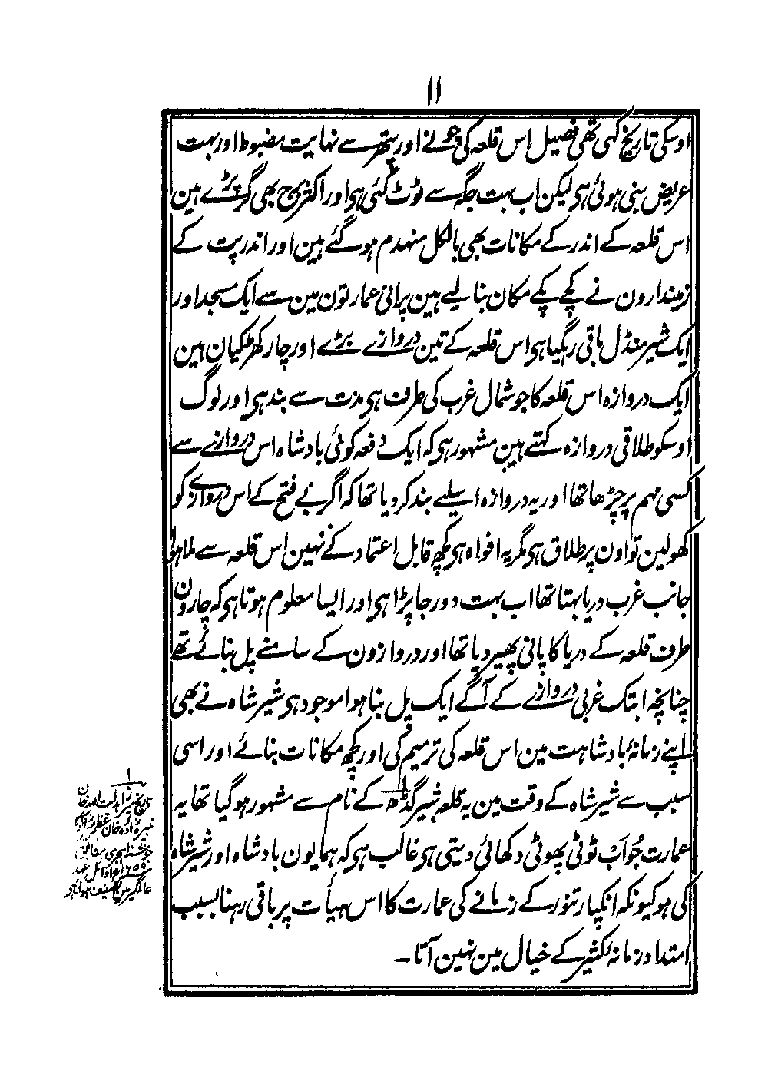 ۱۱
اوسکی تاریخ کہی تھی فصیل اس قلعہ کی چونے اور پتھر سے نہایت مضبوط اور بہت
عریض بنی ہوئی ہی لیکن اب بہت جگہ سے ٹوٹ گئی ہی اور اکثر برج بھی گر پڑے ہین
اس قلعہ کے اندر کے مکانات بھی بالکل منہدم ہو گئے ہین اور اندرپت کے
زمیندارون نے کچے پکے مکان بنا لیے ہین پرانی عمارتون مین سے ایک مسجد اور
ایک شیر منڈل باقی رہگیا ہی اس قلعہ کے تین دروازے بڑے اور چار کھڑکیان ہین
ایک دروازہ اس قلعہ کا جو شمال غرب کی طرف ہی مدت سے بند ہی اور لوگ
اوسکو طلاقی دروازہ کہتے ہین مشہور ہی کہ ایک دفعہ کوئی بادشاہ اس دروازے سے
کسی مہم پر چڑھا تھا اور یہ دروازہ اسلیے بند کر دیا تھا کہ اگر بے فتح کے اس دروازے کو
کھولین تو اون پر طلاق ہی مگر یہ افواہ ہی کچھ قابل اعتماد کے نہین اس قلعہ سے ملا ہوا
جانب غرب دریا بہتا تھا اب بہت دور جا پڑا ہی اور ایسا معلوم ہوتا ہی کہ چارون
طرف قلعہ کے دریا کا پانی پھیر دیا تھا اور دروازون کے سامنے پل بنائے تھے
چنانچہ ابتک غربی دروازے کے آگے ایک پل بنا ہوا موجود ہی شیر شاہ نے بھی
اپنے زمانہ بادشاہت مین اس قلعہ کی ترمیم کی اور کچھ مکانات بنائے اور اسی
سبب سے شیر شاہ کے وقت مین یہ قلعہ شیر گڈھ کے نام سے مشہور ہو گیا تھا یہ
عمارت جو اب ٹوٹی پھوٹی دکھائی دیتی ہی غالب ہی کہ ہمایون بادشاہ اور شیر شاہ
کی ہو کیونکہ انکپار تنور کے زمانے کی عمارت کا اس ہیأت پر باقی رہنا بسبب
امتداد زمانہ کثیر کے خیال مین نہین آتا ۔